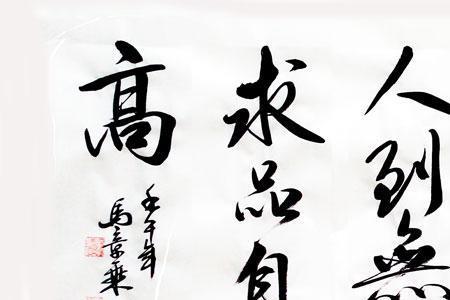 人到無
求品自
高
壬午年
馬景乘